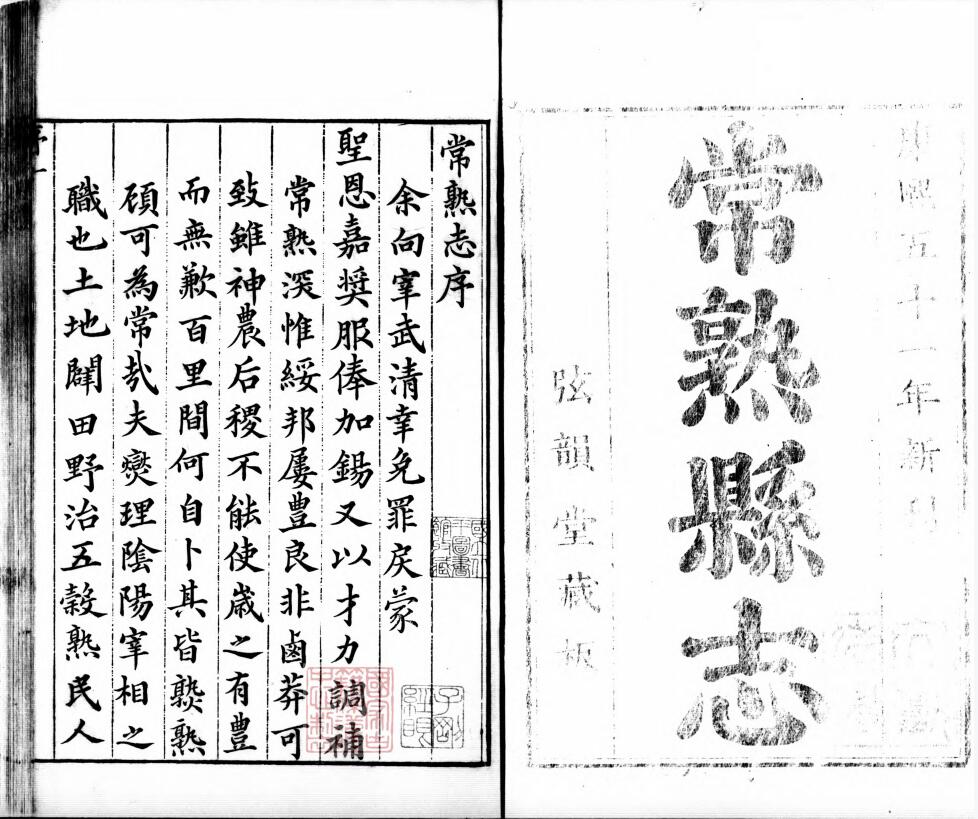 康熙五十一年新刊
常熟縣志
弦韻堂藏板
常熟志序
余向宰武清幸免罪戾蒙
聖恩嘉奬服俸加錫又以才力調補
常熟深惟綏邦屢豊良非鹵莽可
致雖神農后稷不能使歳之有豊
而無歉百里間何自卜其皆熟熟
頋可為常㢤夫爕理隂陽宰相之
職也土地闢田野治五榖熟民人